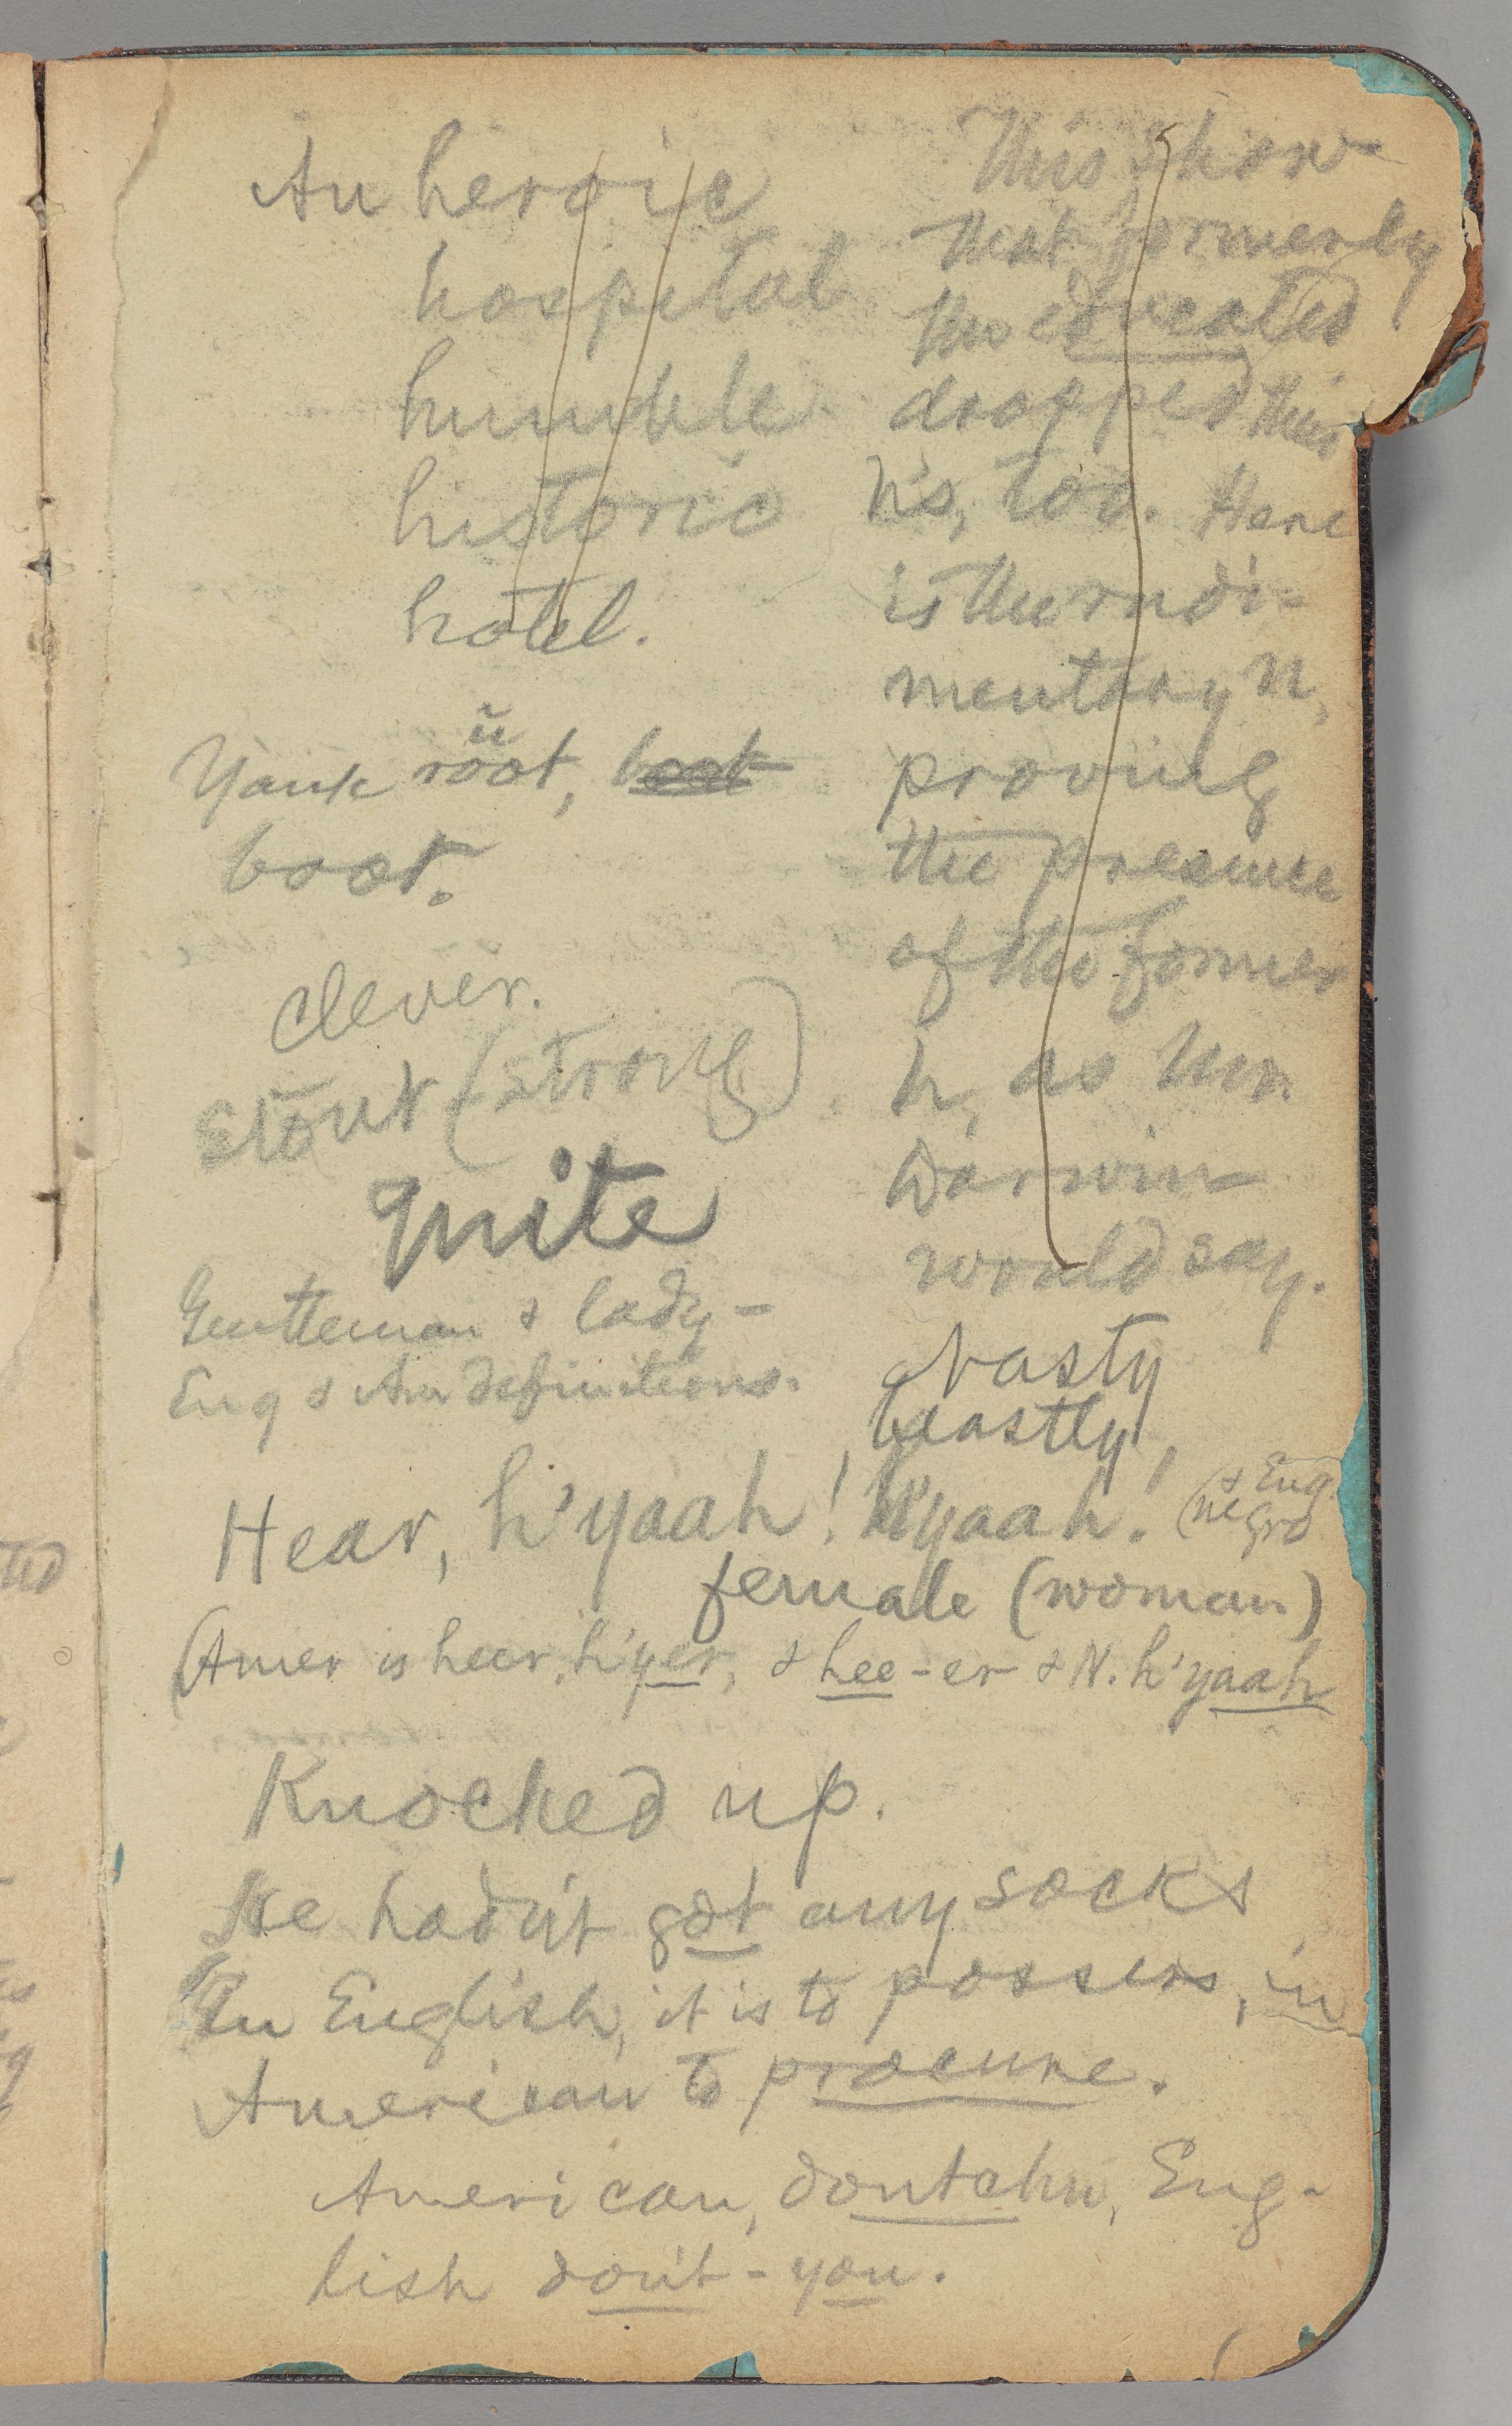 An heroic
hospital
humble
historic
hotel.
Yank rŏot, boot
ŭ
boot.
clever.
Stout (strong)
quite
Gentleman & lady—
Eng & Am definitions.
This show
that formerly
the educated
dropped their
h's, too. Here
is the rudi-
mentary n,
proving
the presence
of the former
h, as Mr.
Darwin
would say.
nasty
beastly
Hear, h'yaah! h'yaah! (& Eng.
negro
female (woman)
(Amer is heer, h'yer, & hee-er & N. h'yaah
Knocked up.
He hadn't got any socks
In English, it is to possess, in
American to procure.
American, dontchu, Eng-
lish don't-you.